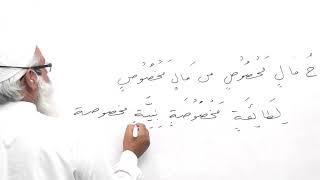 مالٍ مَخْصُوصٍ من مَالٍ مَخْصُوصٍ
لِطَائِفَةٍ مَخْصُوصَةٍ بِنِيَّةٍ مخصوصة